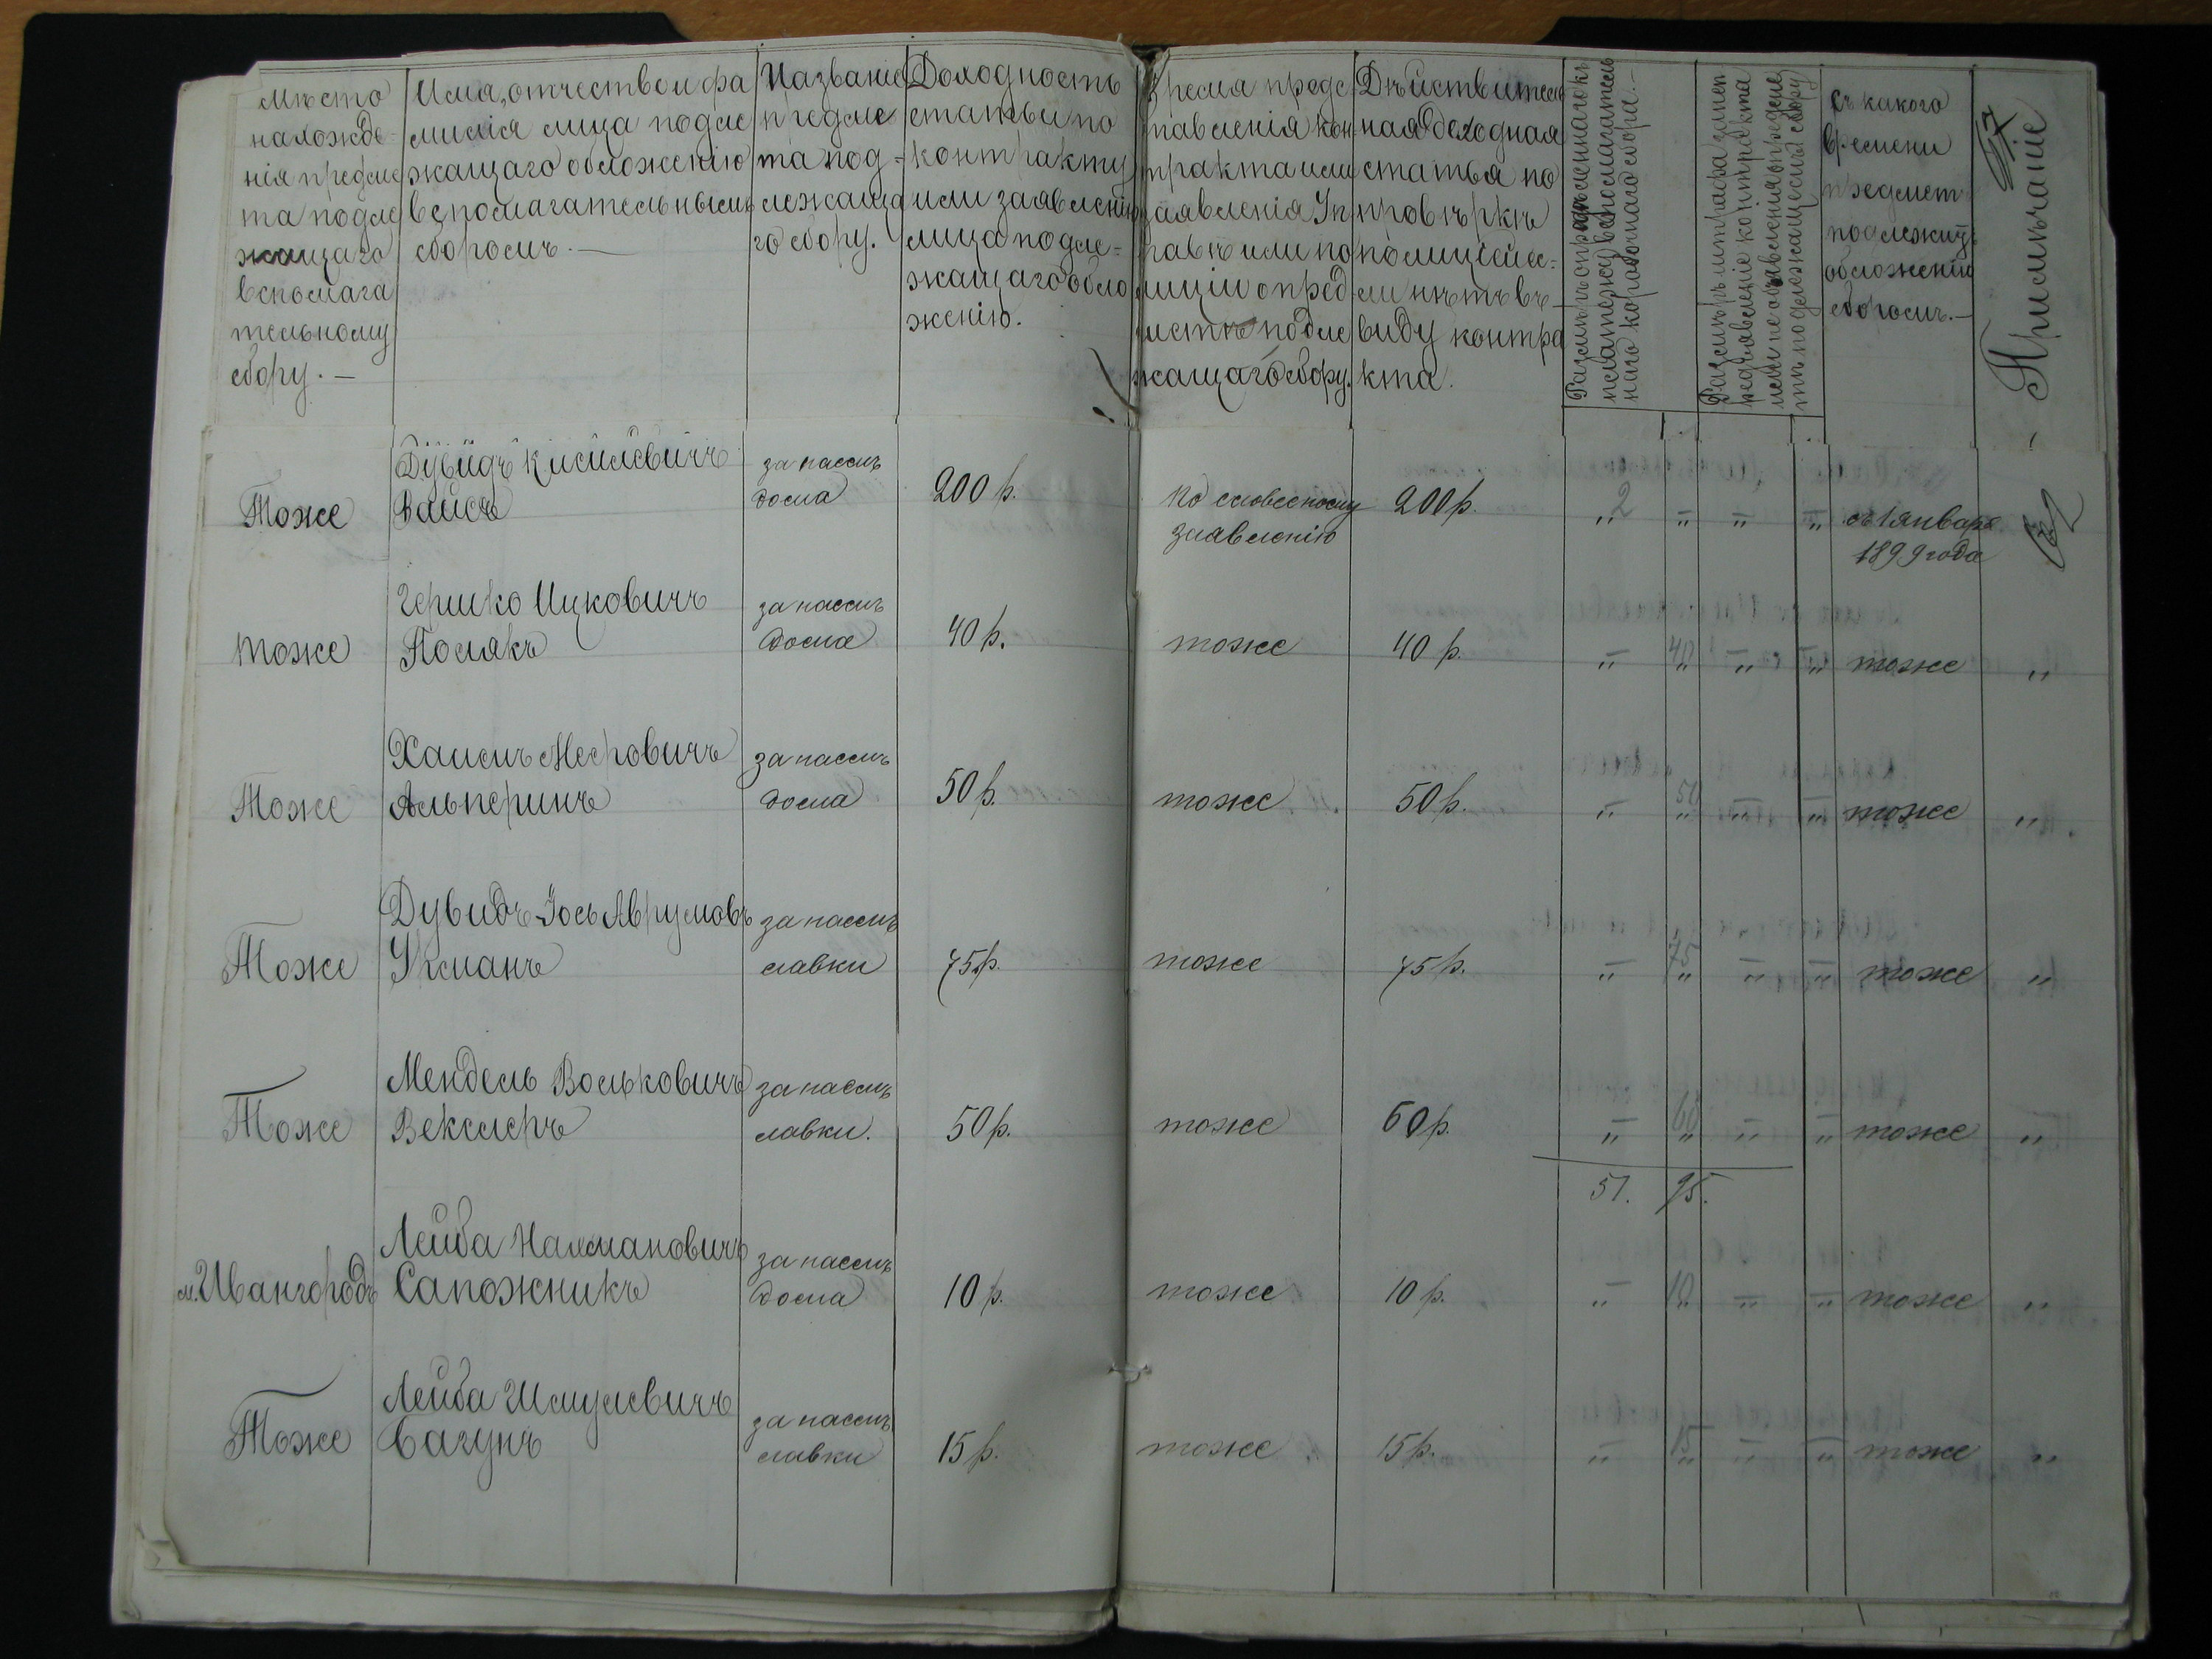 Мѣсто
нахожде-
нія предме
та подле
жащаго
вспомага
тельному
сбору. —
Имя, отчество и фа
милія лица подле
жащаго обложенію
вспомагательнымъ
сборомъ. —
Названіе
предме
та под-
лежаща
го сбору.
Доходность
статьи по
контракту
или заявленію
лица подле-
жащаго обло
женію.
Время предс
тавленія кон
тракта или
заявленія Уп
равѣ или по
лиціи о пред
метѣ подле
жащаго сбору.
Дѣйствитель
ная доходная
статья по
провѣркѣ
полиціей е-
сли нѣтъ въ
виду контра
кта.
Размѣръ опредѣленнаго къ
платежу вспомагатель
наго коробочнаго сбора. —
Размѣръ штрафа за неп
редъявленіе контракта
или не объявленія о предме
тѣ подлежащемъ сбору
съ какого
времени
предметъ
подлежитъ
обложенію
сборомъ. —
Примѣчаніе
Тоже
Дувидъ Кисилевичъ
Вайсъ
за наемъ
дома
200 р.
По словесному
заявленію
200 р.
„ 2 „ „ „
съ 1 января
1899 года
тоже
Гершко Ицковичъ
Полякъ
за наемъ
дома
40 р.
тоже
40 р.
„ 40 „ „
тоже
„
Тоже
Хаимъ Меровичъ
Альперинъ
за наемъ
дома
50 р.
тоже
50 р.
„ 50 „ „
тоже
„
Тоже
Дувидъ-Іось Аврумовъ
Укманъ
за наемъ
лавки
75 р.
тоже
75 р.
„ 75 „ „
тоже
„
Тоже
Мендель Вольковичъ
Векслеръ
за наемъ
лавки.
50 р.
тоже
60 р.
„ 60 „ „
тоже
„
51. 95.
м. Ивангородъ
Лейба Нахмановичъ
Сапожникъ
за наемъ
дома
10 р.
тоже
10 р.
„ 10 „ „
тоже
„
Тоже
Лейба Шмулевичъ
Сагунъ
за наемъ
лавки
15 р.
тоже
15 р.
„ 15 „ „
тоже
„